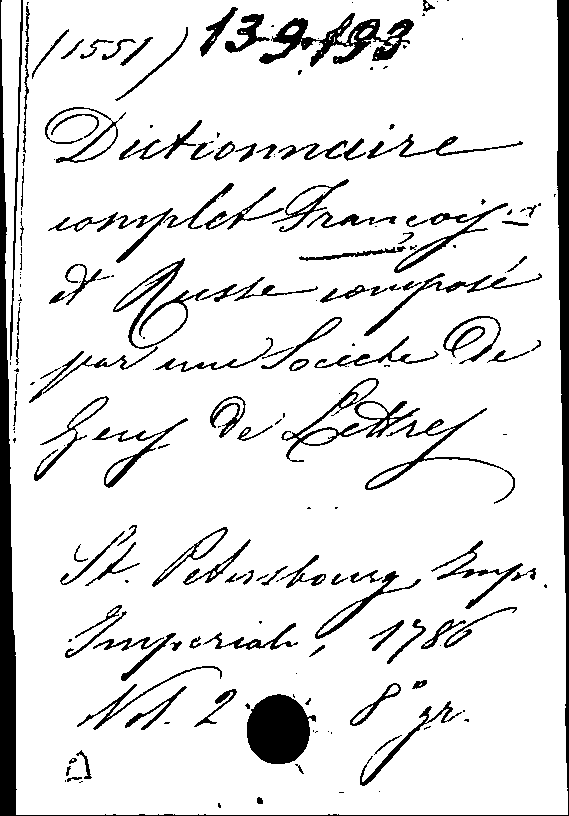 (1551) 139.193
Dictionnaire
complet François
et Russe composé
par une Societe de
Gens de Lettres
St. Petersbourg, Impr.
Imperiale, 1786
Vol. 2 8° gr.